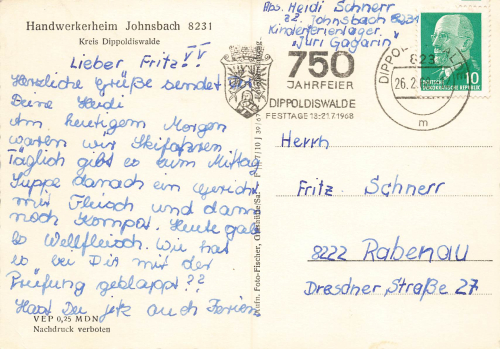 Handwerkerheim Johnsbach 8231
Kreis Dippoldiswalde
Lieber Fritz!
Herzliche Grüße sendet Dir
Deine Heidi
Am heutigem Morgen
waren wir Skifahren
Täglich gibt es zum Mittag
Suppe danach ein Gericht
mit Fleisch und dann
noch Kompot. Heute gab
es Wellfleisch. Wie hat
es bei Dir mit der
Prüfung geklappt??
Hast Du jetz auch Ferien
VEP 0,25 MDN
Nachdruck verboten
Abs. Heidi Schnerr
z.Z. Johnsbach 8231
Kinderferienlager
"Juri Gagarin"
750
JAHRFEIER
DIPPOLDISWALDE
FESTTAGE 13:-21.7.1968
823
26.2.
m
10
DEUTSCHE DEMOKRATISCHE REPUBLIK
Herrn
Fritz Schnerr
8222 Rabenau
Dresdner Straße 27